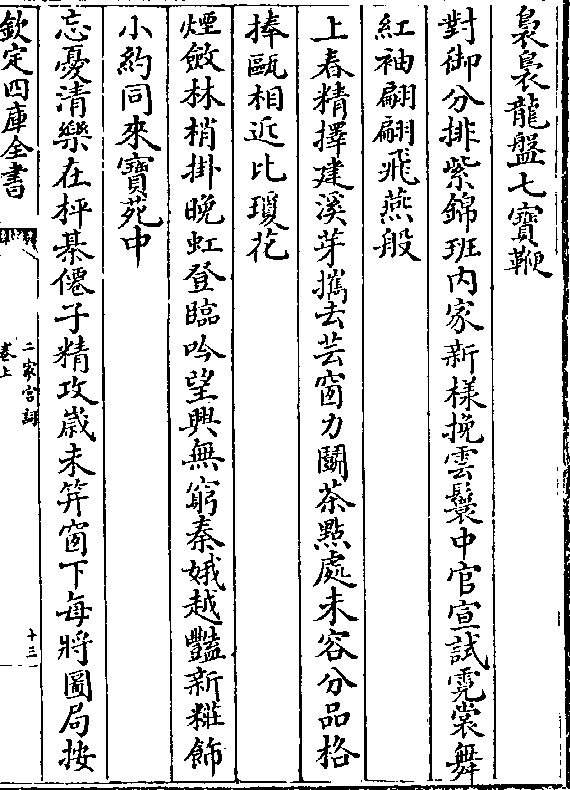 裊裊龍盤七寶鞭
對御分排紫錦班内家新様挽雲鬟中官宣試霓裳舞
紅袖翩翩飛燕般
上春精擇建溪芽擕去芸窗力鬬茶點處未容分品格
捧甌相近比瓊花
煙斂林梢掛晚虹登臨吟望興無窮秦娥越豔新糚飾
小約同來寶苑中
忘憂清樂在枰棊僊子精攻歲未笄窗下每將圖局按
欽定四庫全書
二家宫詞
卷上
十三